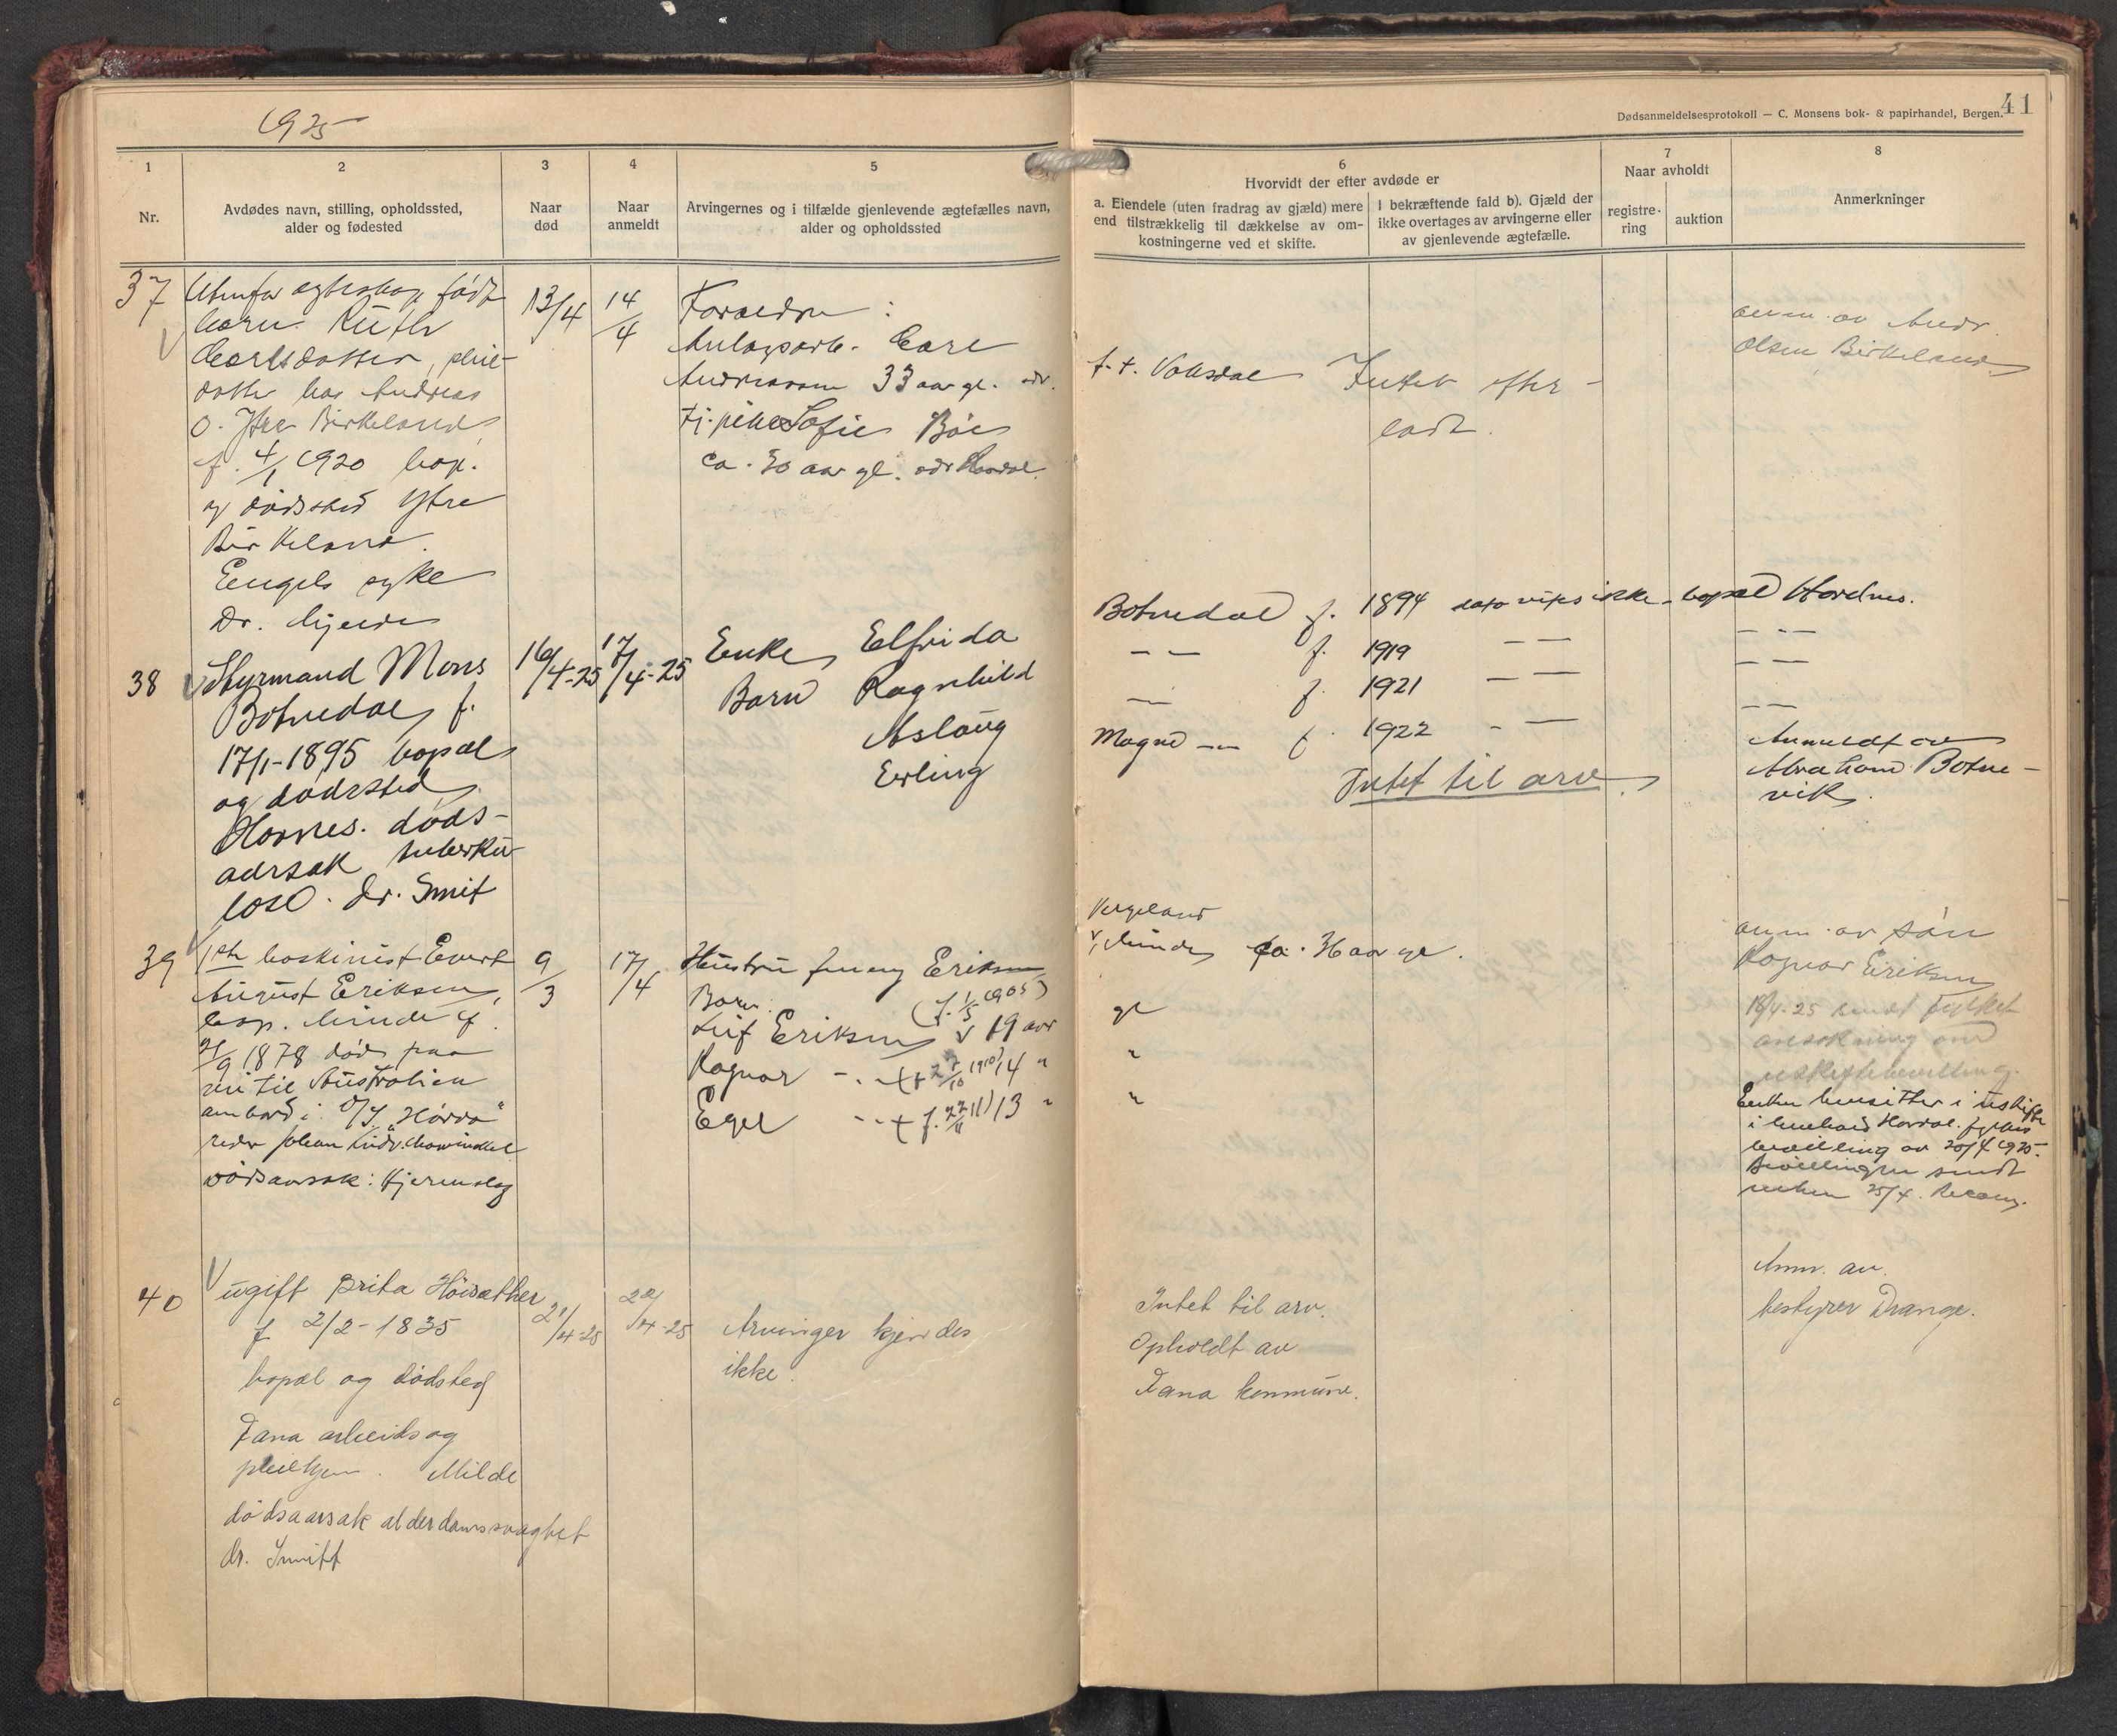 1925
41
Dødsanmeldelsesprotokoll — C. Monsens bok- & papirhandel, Bergen.
1
2
3
4
5
6
7
8
Nr.
Avdødes navn, stilling, opholdssted,
alder og fødested
Naar
død
Naar
anmeldt
Arvingernes og i tilfælde gjenlevende ægtefælles navn,
alder og opholdssted
Hvorvidt der efter avdøde er
a. Eiendele (uten fradrag av gjæld) mere
end tilstrækkelig til dækkelse av om-
kostningerne ved et skifte.
I bekræftende fald b). Gjæld der
ikke overtages av arvingerne eller
av gjenlevende ægtefælle.
Naar avholdt
registre-
ring
auktion
Anmerkninger
37
Utenfor egteskap født
barn Ruth
Carlsdatter, pleie-
datter hos Andreas
O. Ytre Birkeland,
f. 4/1 1920 bop.
og dødssted Ytre
Birkeland.
Engels syke
Dr.
13/4
14/4
Forældre:
Anlægsarb. Carl
Andreassen 33 aar gl. adr.
f.t. Vaksdal
tj.pike Sofie Böe
ca. 30 aar gl. adr
Intet efter-
ladt.
anm. av Andr.
Olsen Birkeland
38
Styrmand Mons
Botnedal f.
17/1-1895 bopæl
og dødssted
Hornes. døds-
aarsak tuberku-
lose. Dr. Smit
16/4-25
17/4-25
Enke Elfrida Botnedal f. 1894 dato vites ikke - bopæl Hordnes.
Barn Ragnhild — — f. 1919 — — — —
Aslaug — f. 1921 — — — —
Erling Magne — f. 1922 — — — —
Intet til arv.
Anmeldt av
Abraham Botne-
vik.
39
1ste maskinist Evert
August Eriksen,
bop. Minde f.
/9 1878 død paa
rei til Australien
ombord i D/S "Hörda"
reder Johan Ludv. Mowinckel
dødsaarsak: Hjerneslag
9/3
17/4
Hustru Eriksen
Vergeland
Minde ca. aar gl.
Barn: (f. 1/5 1905)
Leif Eriksen 19 aar gl
Ragnar — (f. 27/10 1910) 14 " "
Egil — (f. 22/11 11) 13 " "
anm. av søn
Ragnar Eriksen
18/4-25 sendt fylket
ansøkning om
uskiftebevilling.
Enken hensitter i uskifte
i henhold Hordal. fylkes
bevilling av 20/4 1925.
Bevillingen sendt
enken 25/4. Recom.
40
ugift Brita Höisæther
f. 2/2-1835
bopæl og dödsted
Fana arbeids og
pleiehjem. Milde
dödsaarsak alderdomssvaghet
dr. Smitt
21/4-25
22/4-25
Arvinger kjendes
ikke.
Intet til arv.
Opholdt av
Fana kommune.
Anm. av.
bestyrer Drange.